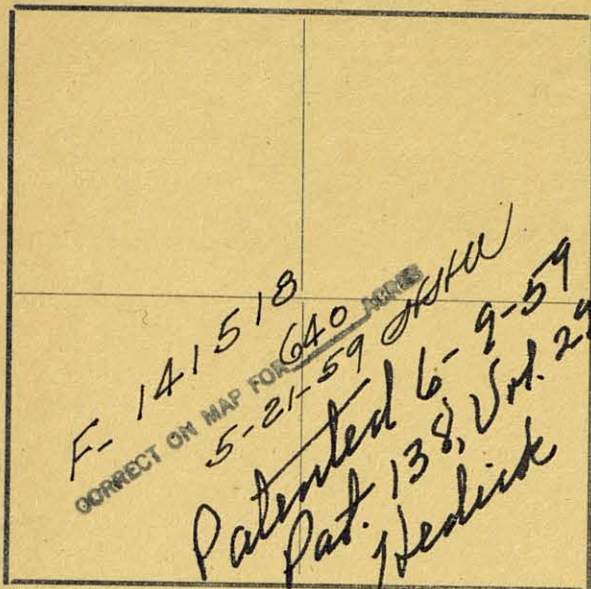 F- 141518
CORRECT ON MAP FOR 640 ACRES
5-21-59
Patented 6-9-59
Pat. 138, Vol. 29
Hedick